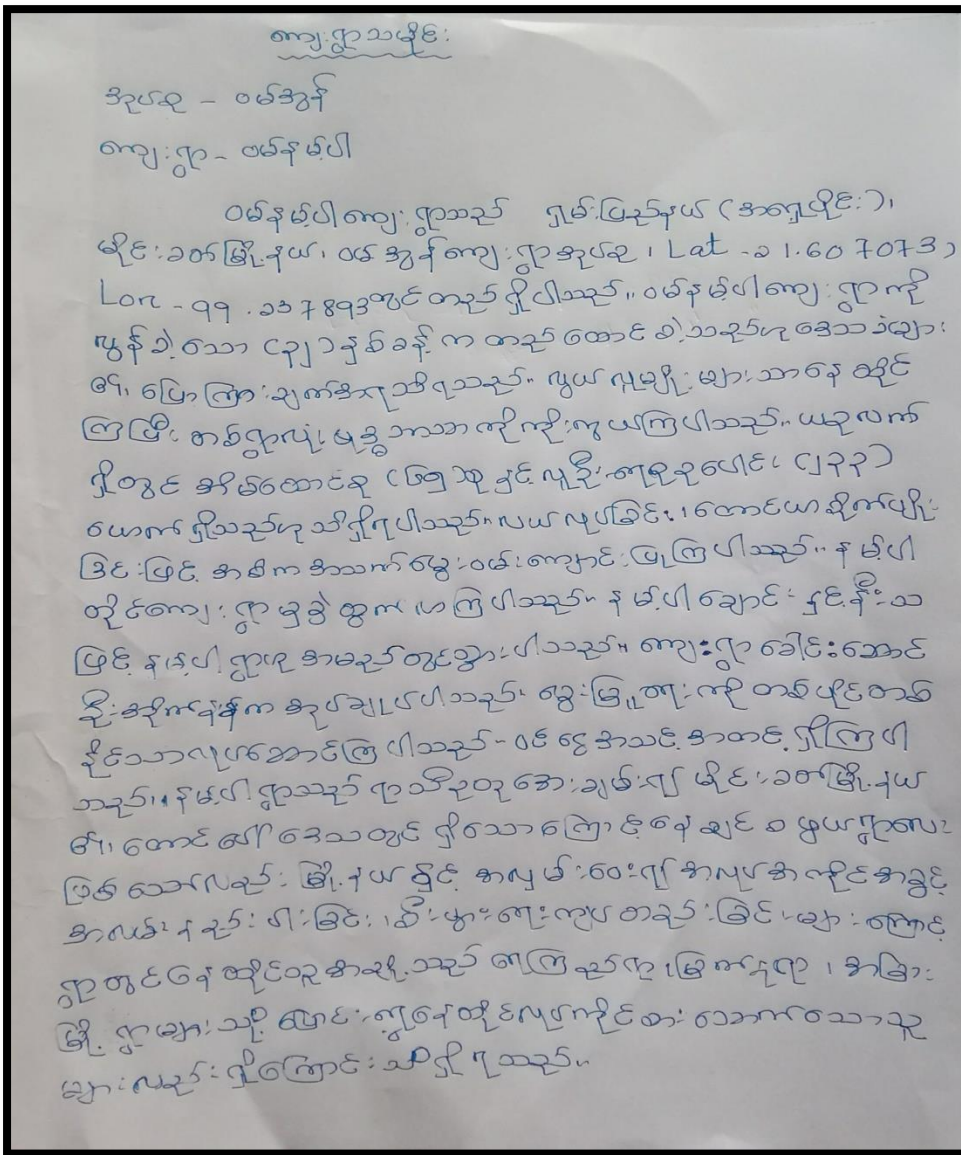 ကျေးရွာသမိုင်း
အုပ်စု - ဝမ်အွန်
ကျေးရွာ - ဝမ်နမ့်ပါ
ဝမ်နမ့်ပါကျေးရွာသည် ရှမ်းပြည်နယ် (အရှေ့ပိုင်း)၊
မိုင်းခတ်မြို့နယ်၊ ဝမ်အွန်ကျေးရွာအုပ်စု၊ Lat - ၁ 1.607073၊
Lon - 99.237893တွင်တည်ရှိပါသည်။ ဝမ်နမ့်ပါကျေးရွာကို
လွန်ခဲ့သော နှစ်ခန့်ကတည်ထောင်ခဲ့သည်ဟု ဒေသခံများ
၏ ပြောကြားချက်အရသိရသည်။ လွယ်လူမျိုးများသာနေထိုင်
ကြပြီး တစ်ရွာလုံး ဗုဒ္ဓဘာသာကိုကိုးကွယ်ကြပါသည်။ ယခုလက်
ရှိတွင် အိမ်ထောင်စု နှင့် လူဦးရေစုစုပေါင်း (၂၃၃)
ယောက်ရှိသည်ဟုသိရှိရပါသည်။ လယ်လုပ်ခြင်း၊ တောင်ယာစိုက်ပျိုး
ခြင်းဖြင့် အဓိကအသက်မွေးဝမ်းကျောင်းပြုကြပါသည်။ နမ့်ပါ
တိုင်ကျေးရွာမှခွဲထွက်လာကြပါသည်။ နမ့်ပါချောင်းနှင့်နီးသ
ဖြင့် နမ့်ပါရွာဟုအမည်တွင်သွားပါသည်။ ကျေးရွာခေါင်းဆောင်
ဦးအိုက်နန်က အုပ်ချုပ်ပါသည်။ မွေးမြူရေးကို တစ်ပိုင်တစ်
နိုင်သာလုပ်ဆောင်ကြပါသည်- ဝင်ငွေအသင့်အတင့်ရှိကြပါ
သည်။ နမ့်ပါရွာသည် ရာသီဥတုအေးချမ်း၍ မိုင်းခတ်မြို့နယ်
၏ တောင်ပေါ်ဒေသတွင် ရှိသောကြောင့်နေချင်စဖွယ်ရွာလေး
ဖြစ်သော်လည်း မြို့နယ်နှင့် အလှမ်းဝေး၍ အလုပ်အကိုင်အခွင့်
အလမ်းနည်းပါးခြင်း၊ စီးပွားရေးကျပ်တည်းခြင်းများကြောင့်
ရွာတွင်နေထိုင်သူအချို့သည် ရေကြည်ရာ၊ မြက်နုရာ၊ အခြား
မြို့ရွာများသို့ ပြောင်းရွှေ့နေထိုင်လုပ်ကိုင်စားသောက်သောသူ
များလည်းရှိကြောင်းသိရှိရသည်။